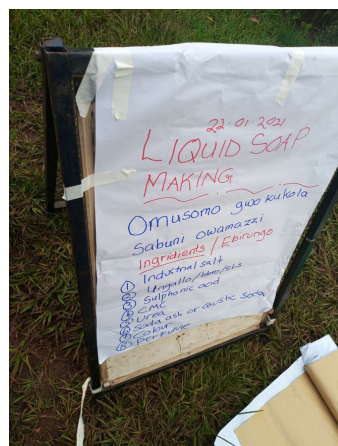 22-01-2021
LIQUID SOAP
MAKING
Omusomo gwokukola
sabuni owamazzi
Ingridients / Ebirungo
① Industrial salt
② Ungallo/
③ Sulphonic acid
④ CMC
⑤ Urea
⑥ Soda ash or caustic Soda
⑦ Colour
⑧ Perfume